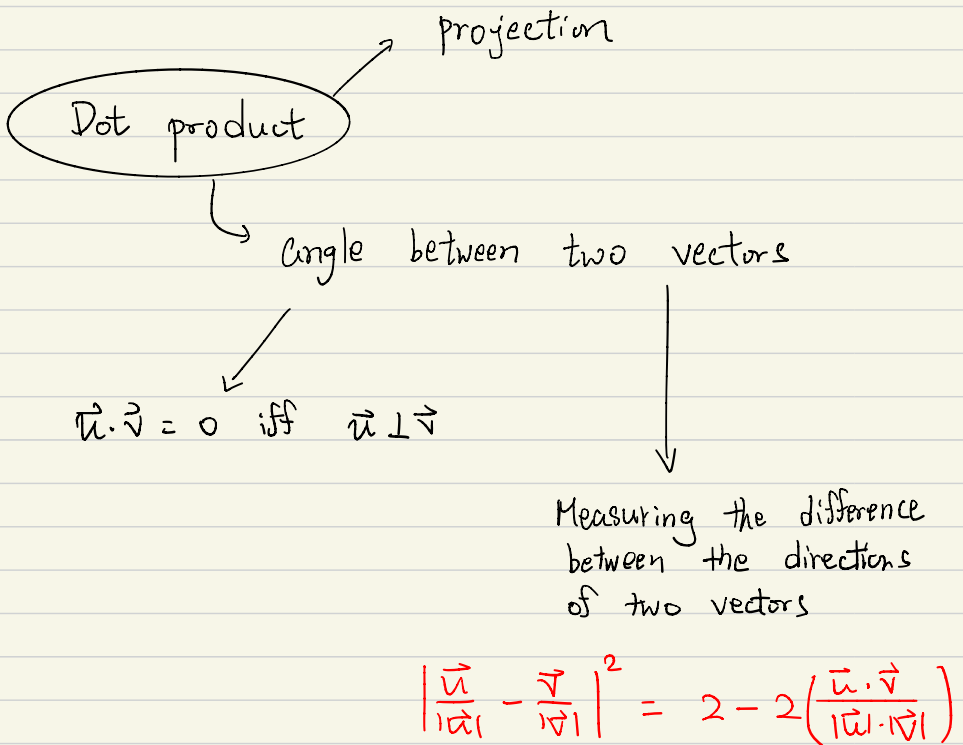 projection
Dot product
angle between two vectors
$\vec{u} \cdot \vec{v} = 0$ iff $\vec{u} \perp \vec{v}$
Measuring the difference
between the directions
of two vectors
$\left|\frac{\vec{u}}{|\vec{u}|} - \frac{\vec{v}}{|\vec{v}|}\right|^2 = 2 - 2\left(\frac{\vec{u} \cdot \vec{v}}{|\vec{u}| \cdot |\vec{v}|}\right)$